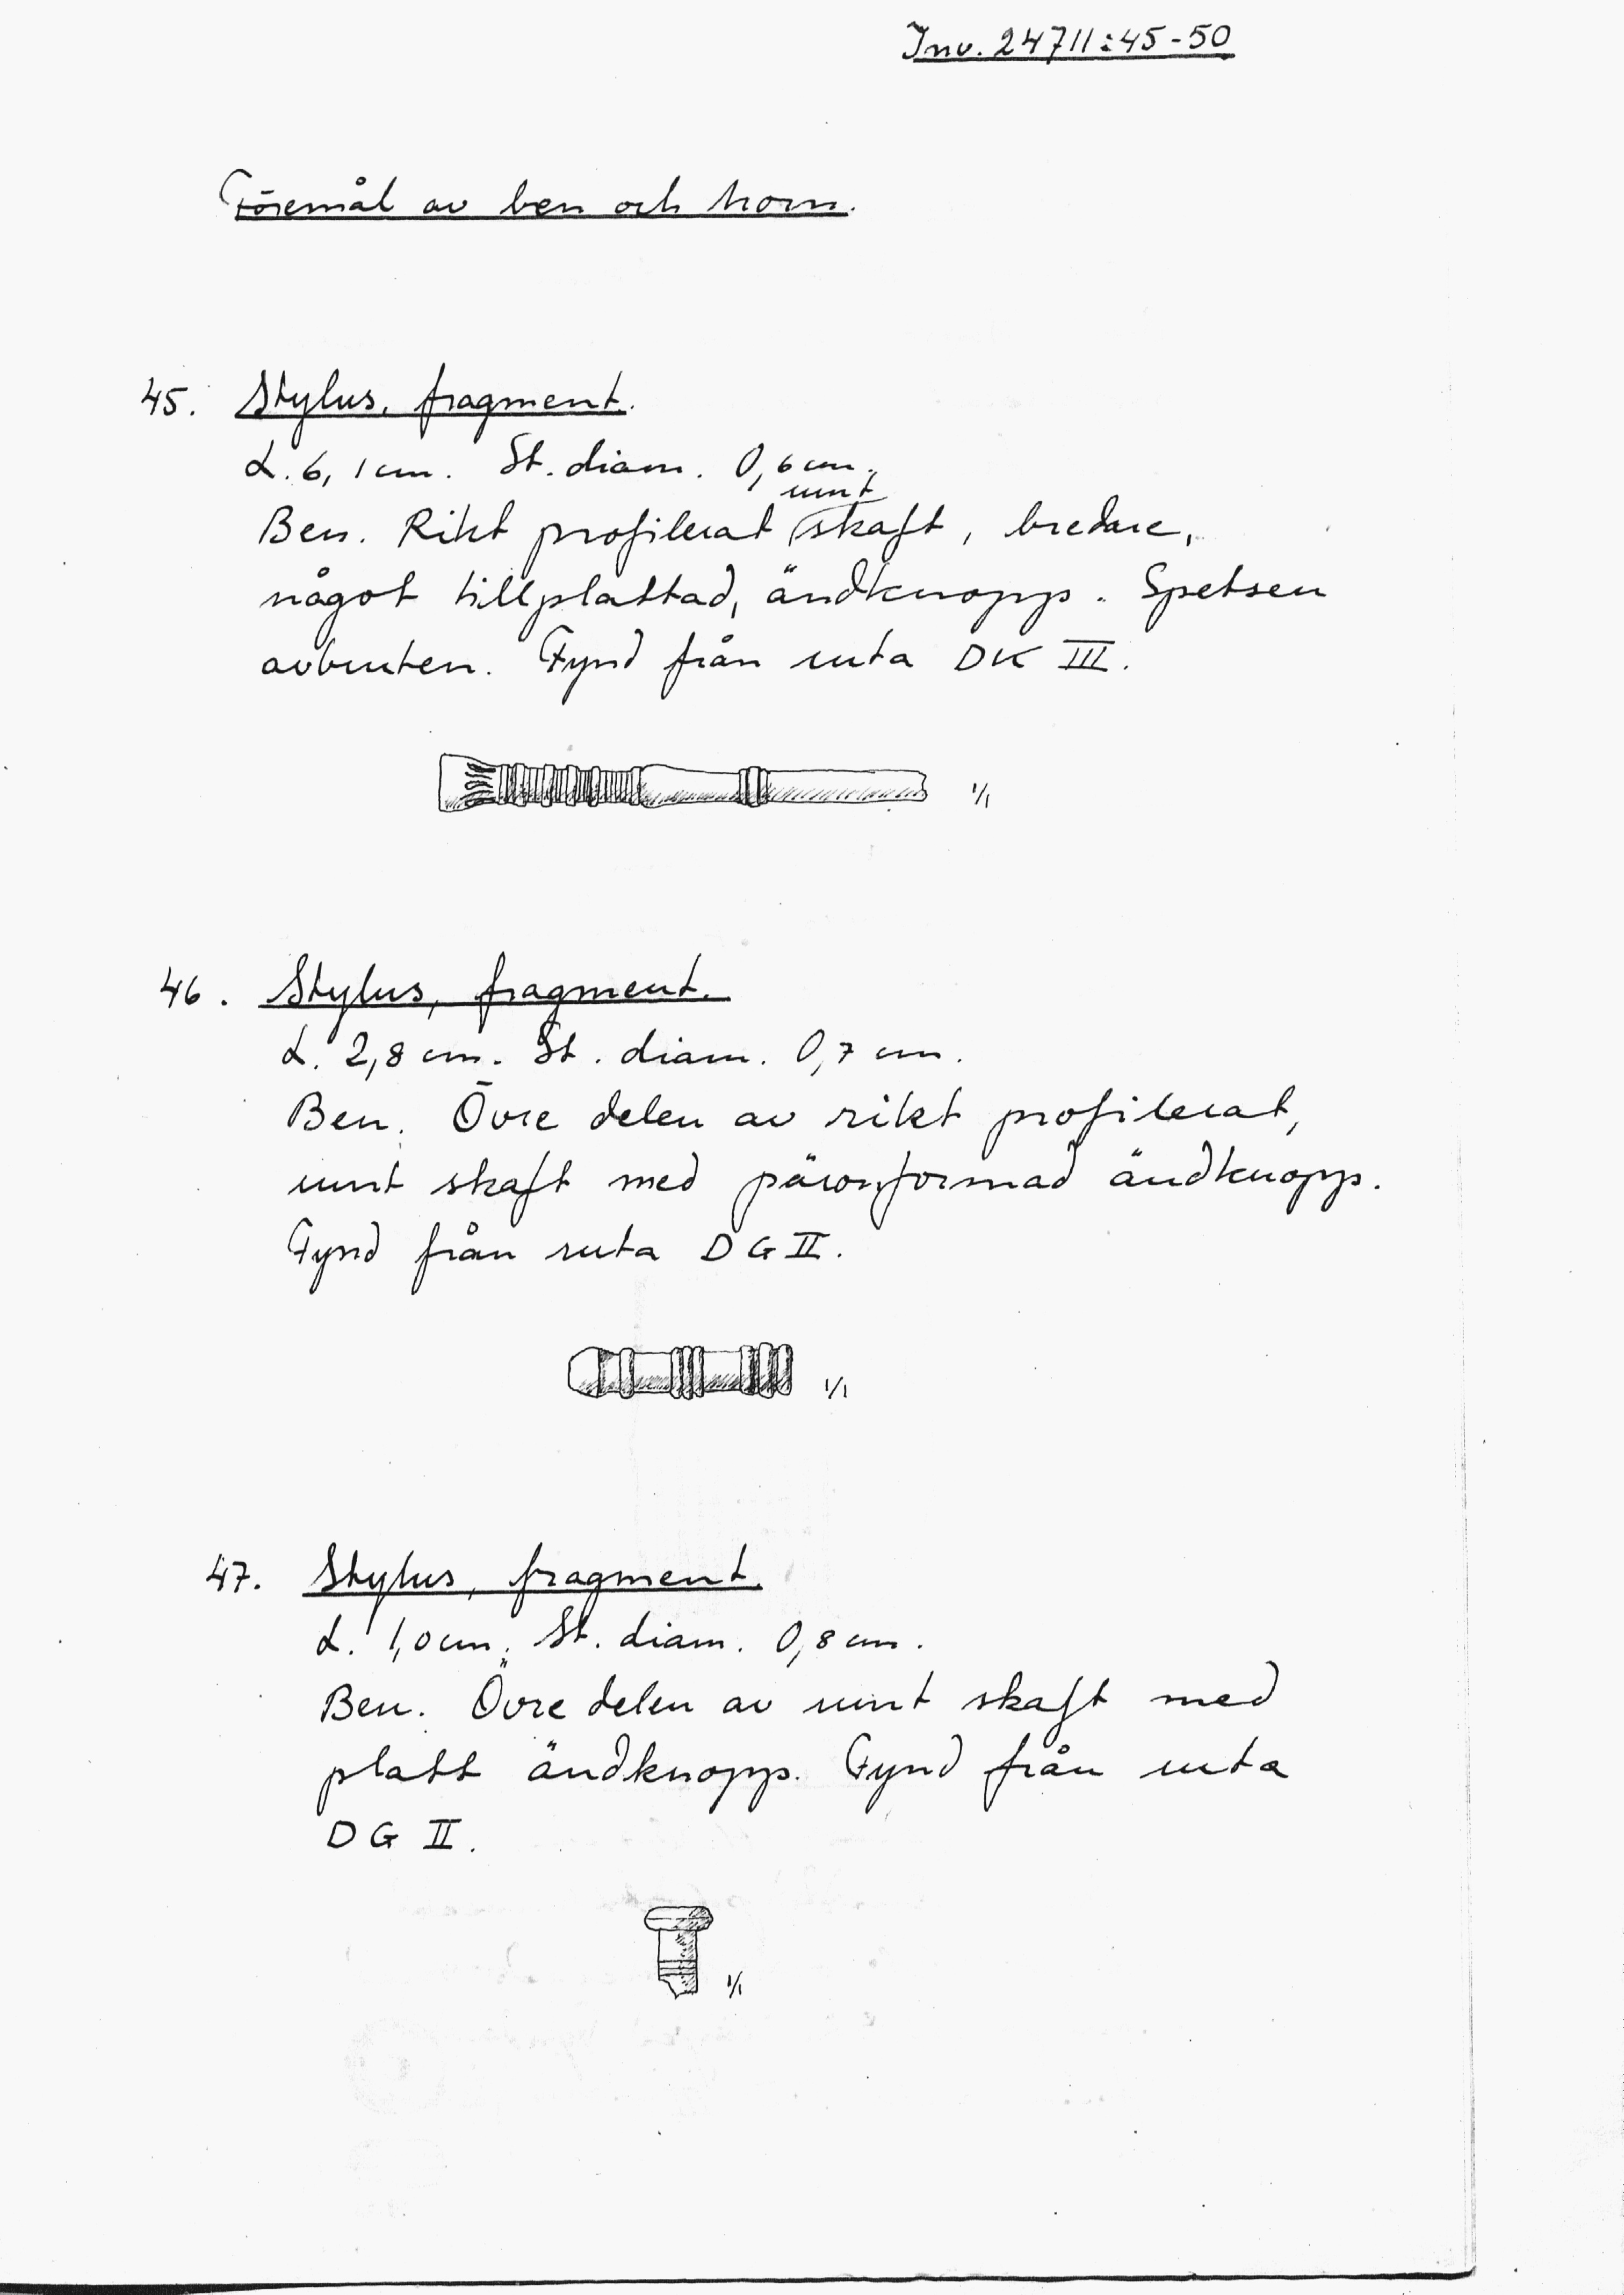 Inv. 24711:45-50
Föremål av ben och horn.
45. Stylus, fragment.
L. 6,1 cm. St. diam. 0,6 cm.
runt
Ben. Rikt profilerat skaft, bredare,
något tillplattad, ändknopp. Spetsen
avbruten. Fynd från ruta DK III.
1/1
46. Stylus, fragment.
L. 2,8 cm. St. diam. 0,7 cm.
Ben. Övre delen av rikt profilerat,
runt skaft med päronformad ändknopp.
Fynd från ruta DG II.
1/1
47. Stylus, fragment.
L. 1,0 cm. St. diam. 0,8 cm.
Ben. Övre delen av runt skaft med
platt ändknopp. Fynd från ruta
DG II.
1/1